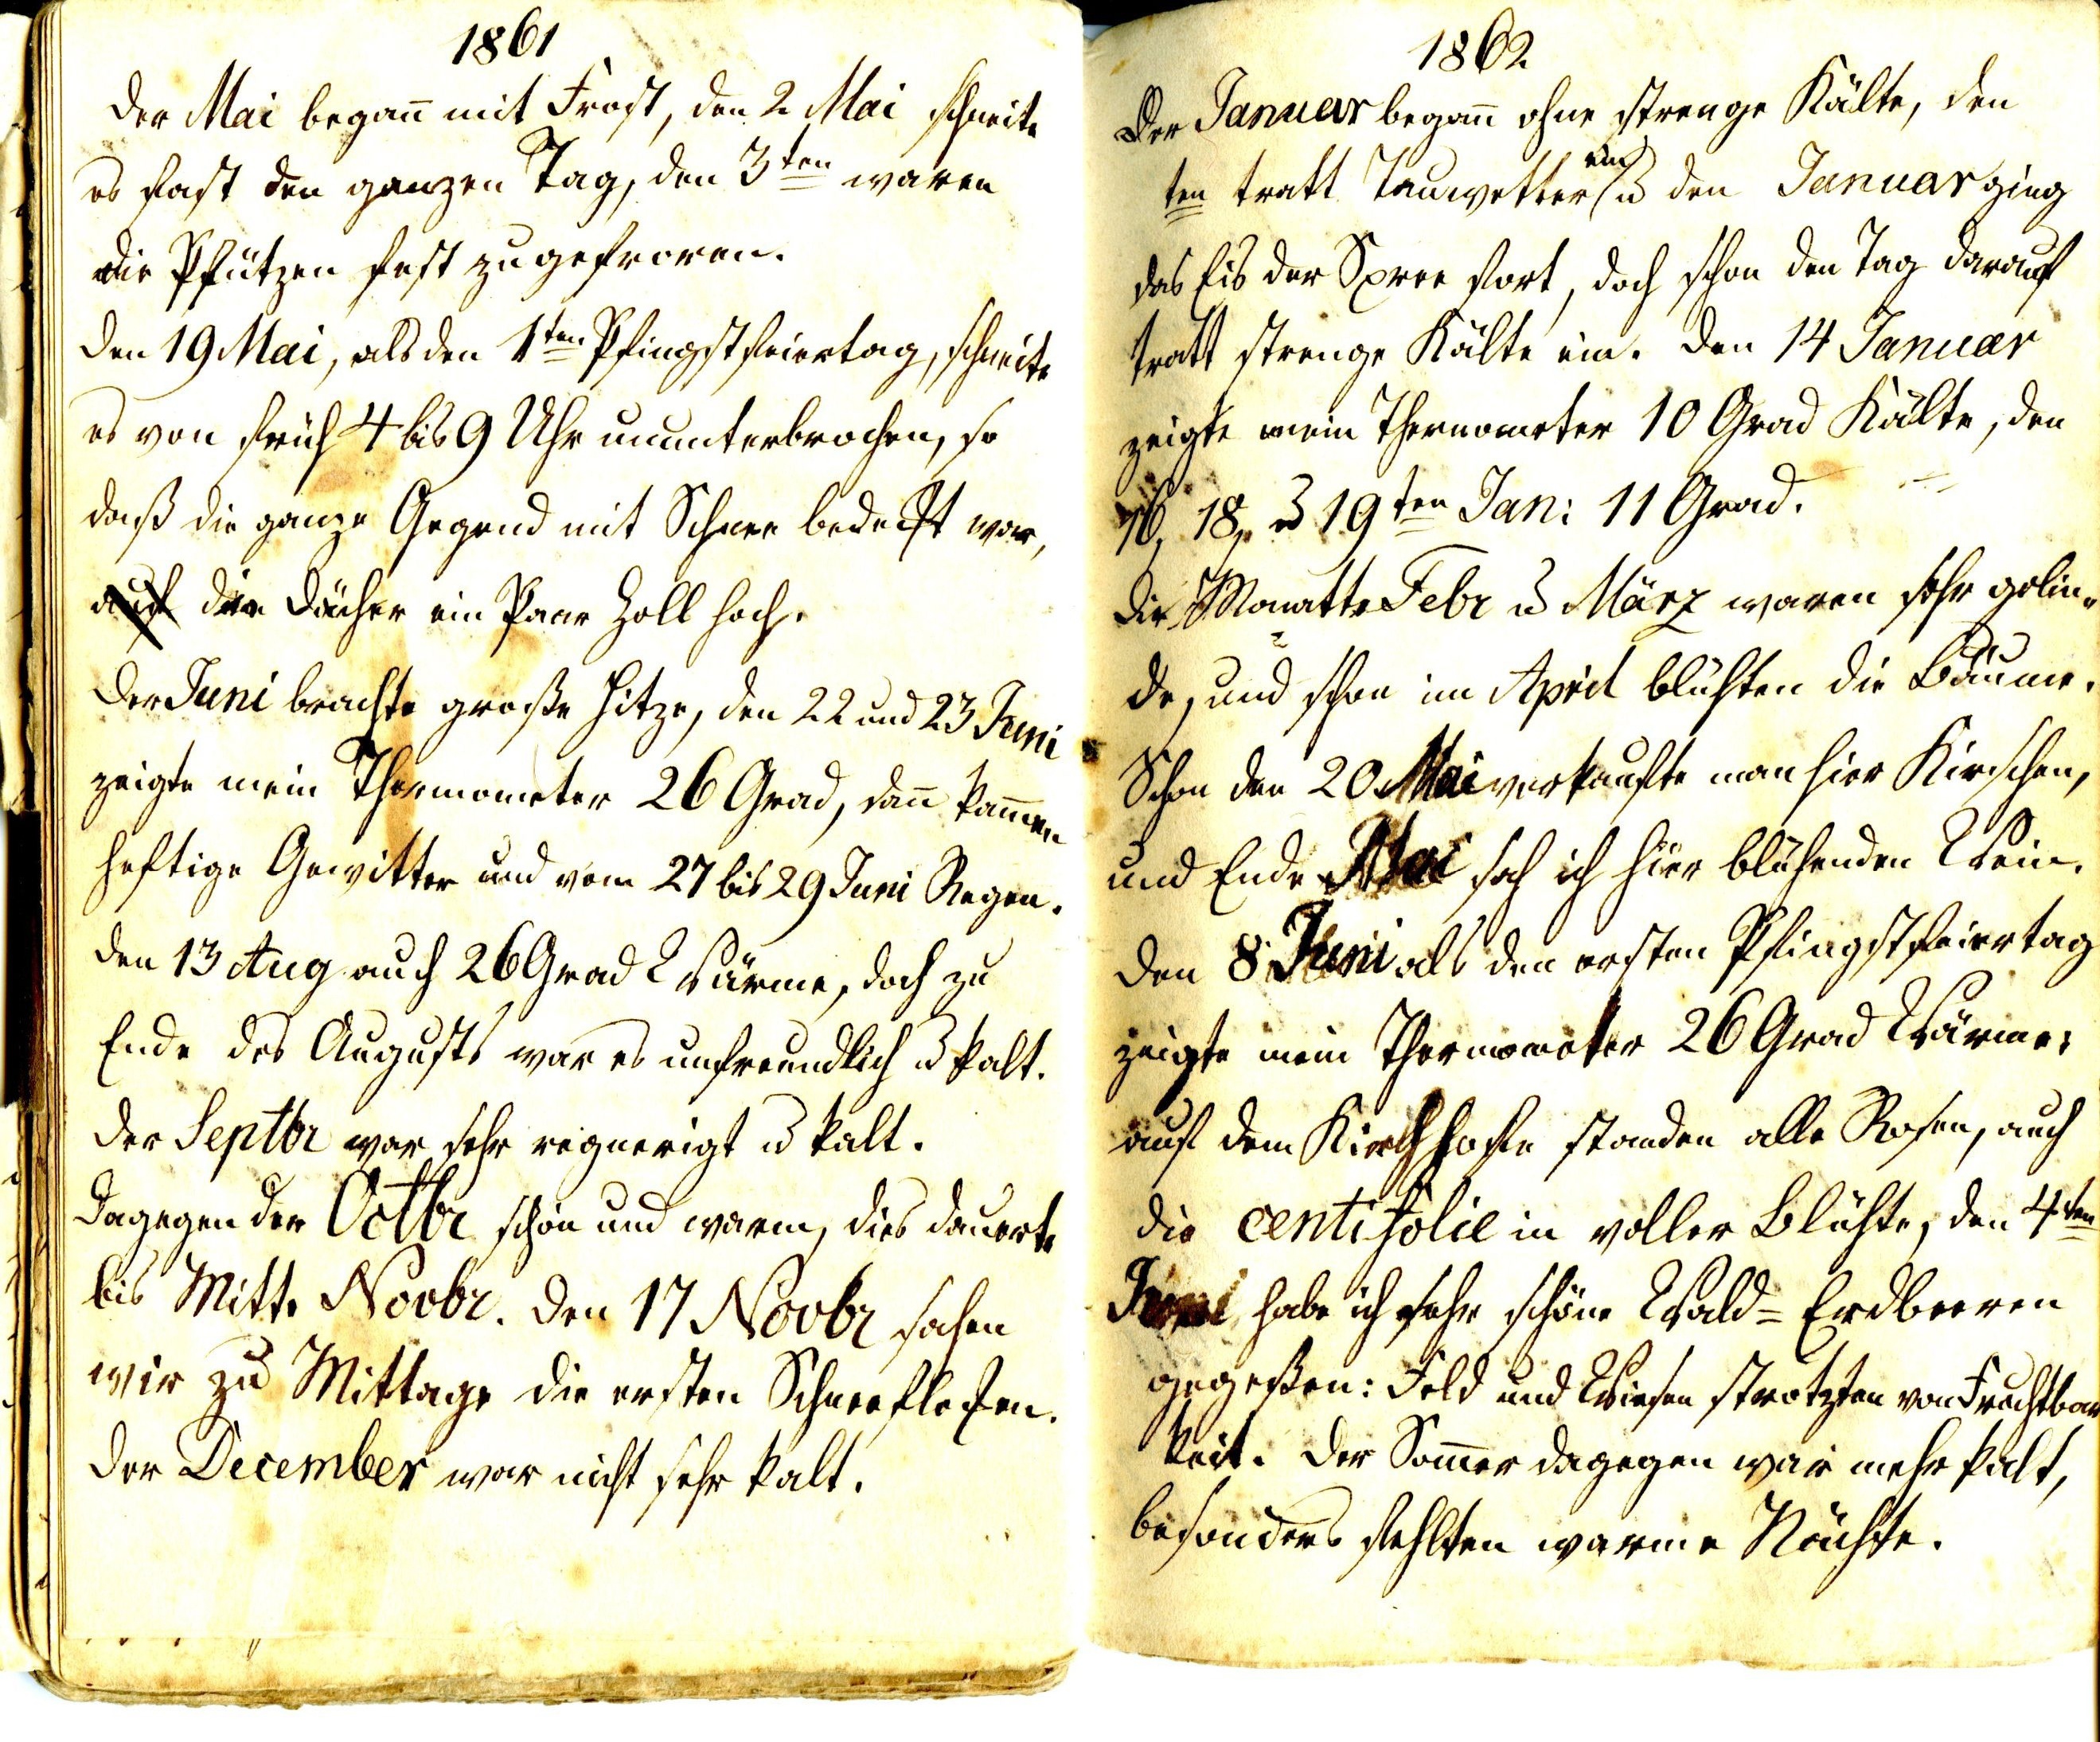 1861
Der Mai began̄ mit Frost, den 2 Mai schneite
es fast den ganzen Tag, den 3ten waren
die Pfützen fest zugefroren.
Den 19 Mai, als den 1ten Pfingstfeiertag, schneite
es von früh 4 bis 9 Uhr ununterbrochen, so
daß die ganze Gegend mit Schnee bedeckt war,
auf die Dächer ein Paar Zoll hoch.
Der Juni brachte große Hitze, den 22 und 23 Juni
zeigte mein Thermometer 26 Grad, dan̄ kam̄en
heftige Gewitter und vom 27 bis 29 Juni Regen.
Den 13 Aug auch 26 Grad Wärme, doch zu
Ende des Augusts war es unfreundlich u kalt.
Der Septbr war sehr regnerigt u kalt.
Dagegen der Octbr schön und warm, dies dauerte
bis Mitte Novbr. Den 17 Novbr sahen
wir zu Mittage die ersten Schneeflocken.
Der December war nicht sehr kalt.
1862
Der Januar began̄ ohne strenge Kälte, den
ten tratt Tauwetter ein u den Januar ging
das Eis der Spree fort, doch schon den Tag darauf
tratt strenge Kälte ein. Den 14 Januar
zeigte mein Thermometer 10 Grad Kälte, den
18, u 19ten Jan: 11 Grad.
Die Monatte Febr u März waren sehr gelin-
de, und schon im April blühten die Bäume.
Schon den 20 Mai verkaufte man hier Kirschen,
und Ende Mai sah ich hier blühenden Wein.
Den 8 Juni als den ersten Pfingstfeiertag
zeigte mein Thermometer 26 Grad Wärme;
auf dem Kirchhofe standen alle Rosen, auch
die centifolie in voller Blühte, den 4ten
Juni habe ich sehr schöne Wald= Erdbeeren
gegeßen: Feld und Wiesen strotzten von Fruchtbar
keit. Der Som̄er dagegen war mehr kalt,
besonders fehlten warme Nächte.